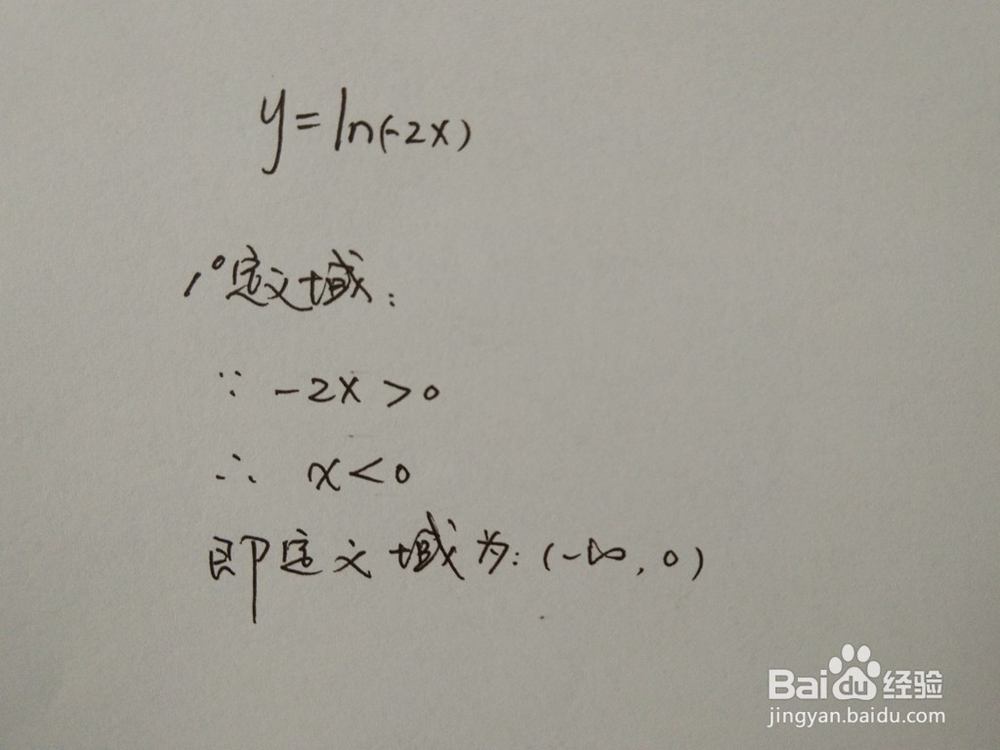 y=ln(-2x)
1°定义域:
∵ -2x>0
∴ x<0
即定义域为:(-∞,0)
Baidu经验
jingyan.baidu.com